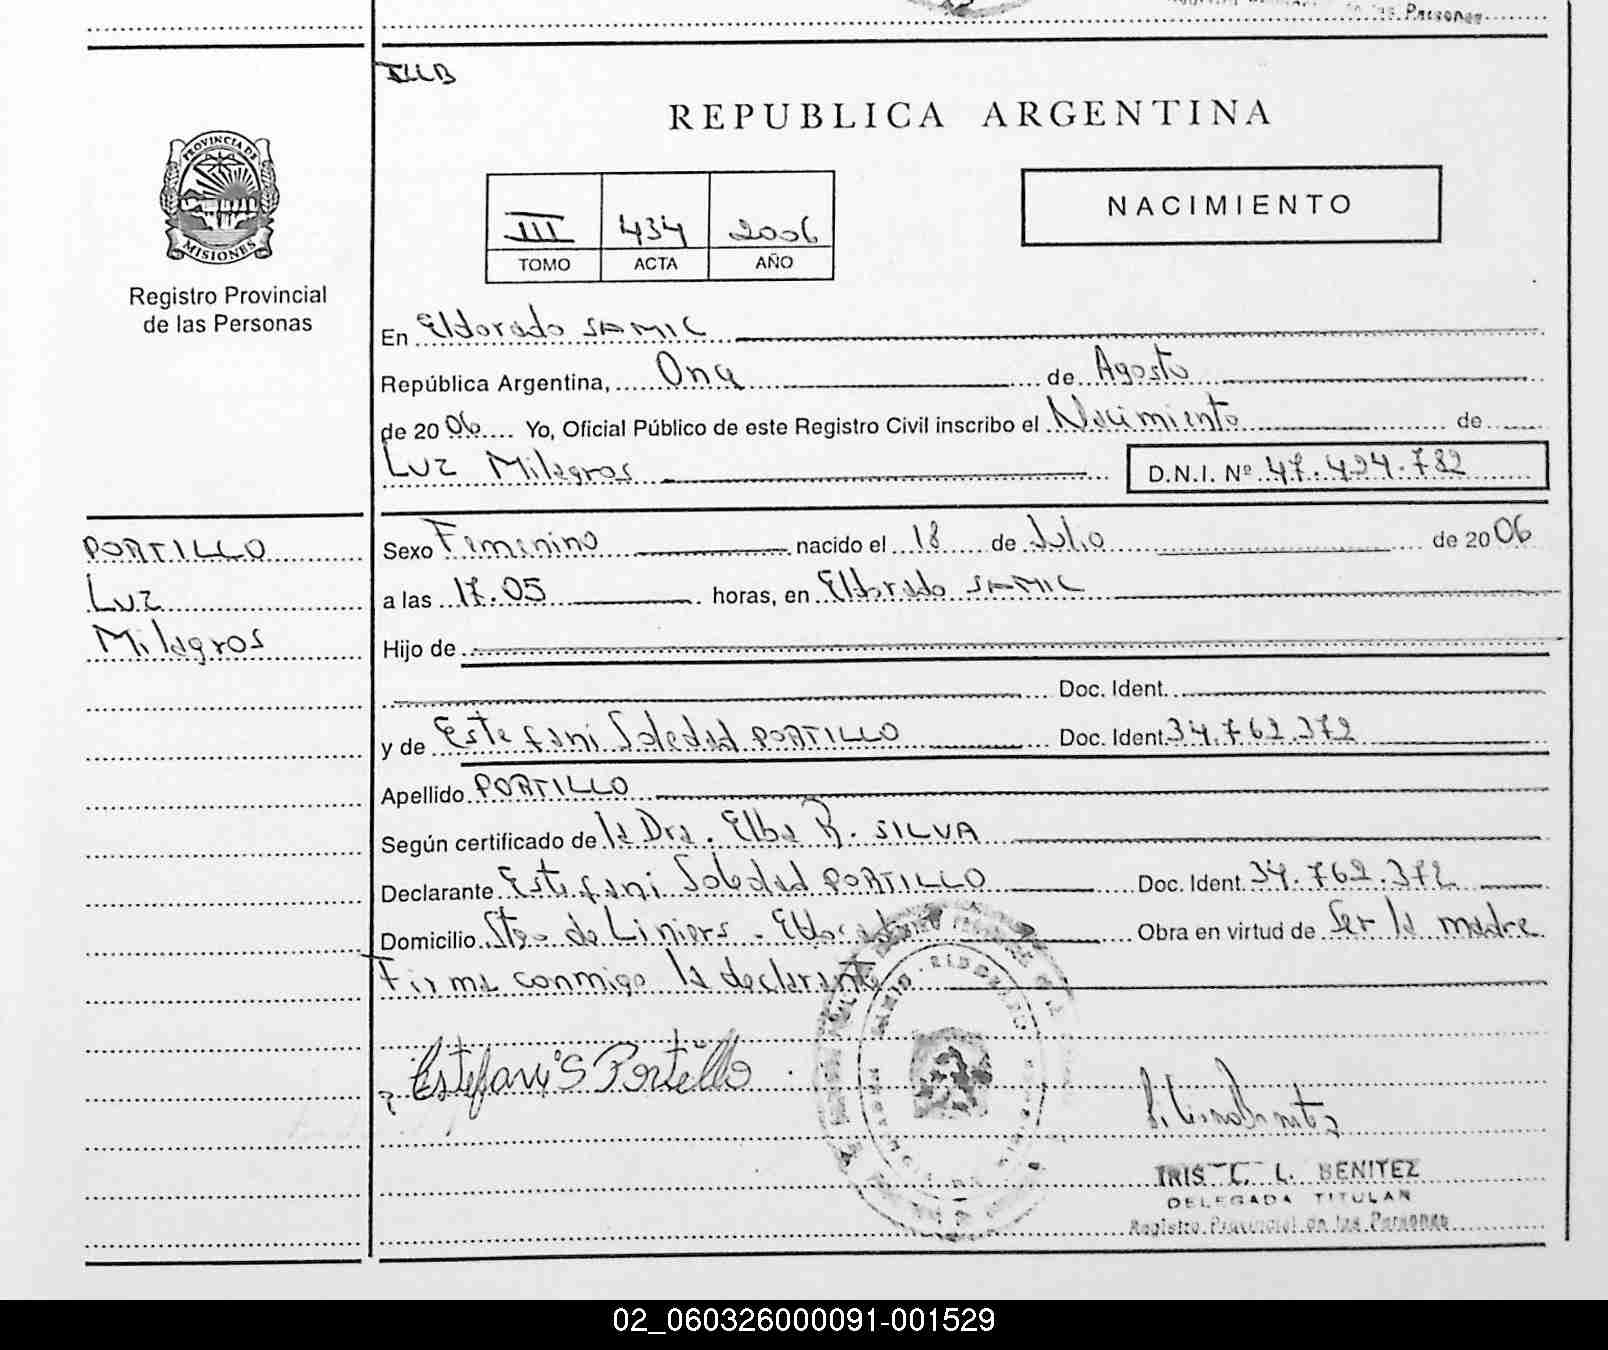 de las Personas
REPUBLICA ARGENTINA
PROVINCIA DE
MISIONES
Registro Provincial
de las Personas
III 434 2006
TOMO ACTA AÑO
NACIMIENTO
En Eldorado SAMIC
República Argentina, Once de Agosto
de 2006 Yo, Oficial Público de este Registro Civil inscribo el Nacimiento de
Luz Milagros D.N.I. Nº 47.424.782
PORTILLO
Luz
Milagros
Sexo Femenino nacido el 18 de Julio de 2006
a las 17.05 horas, en Eldorado SAMIC
Hijo de
Doc. Ident.
y de Estefani Soledad PORTILLO Doc. Ident. 34.762.372
Apellido PORTILLO
Según certificado de la Dra. Elba R. SILVA
Declarante Estefani Soledad PORTILLO Doc. Ident. 34.762.372
Domicilio Stgo de Liniers - Eldorado Obra en virtud de Ser la madre
Firma conmigo la declarante
Estefani S Portillo
IRIS C. L. BENITEZ
DELEGADA TITULAR
Registro Provincial de las Personas
02_060326000091-001529